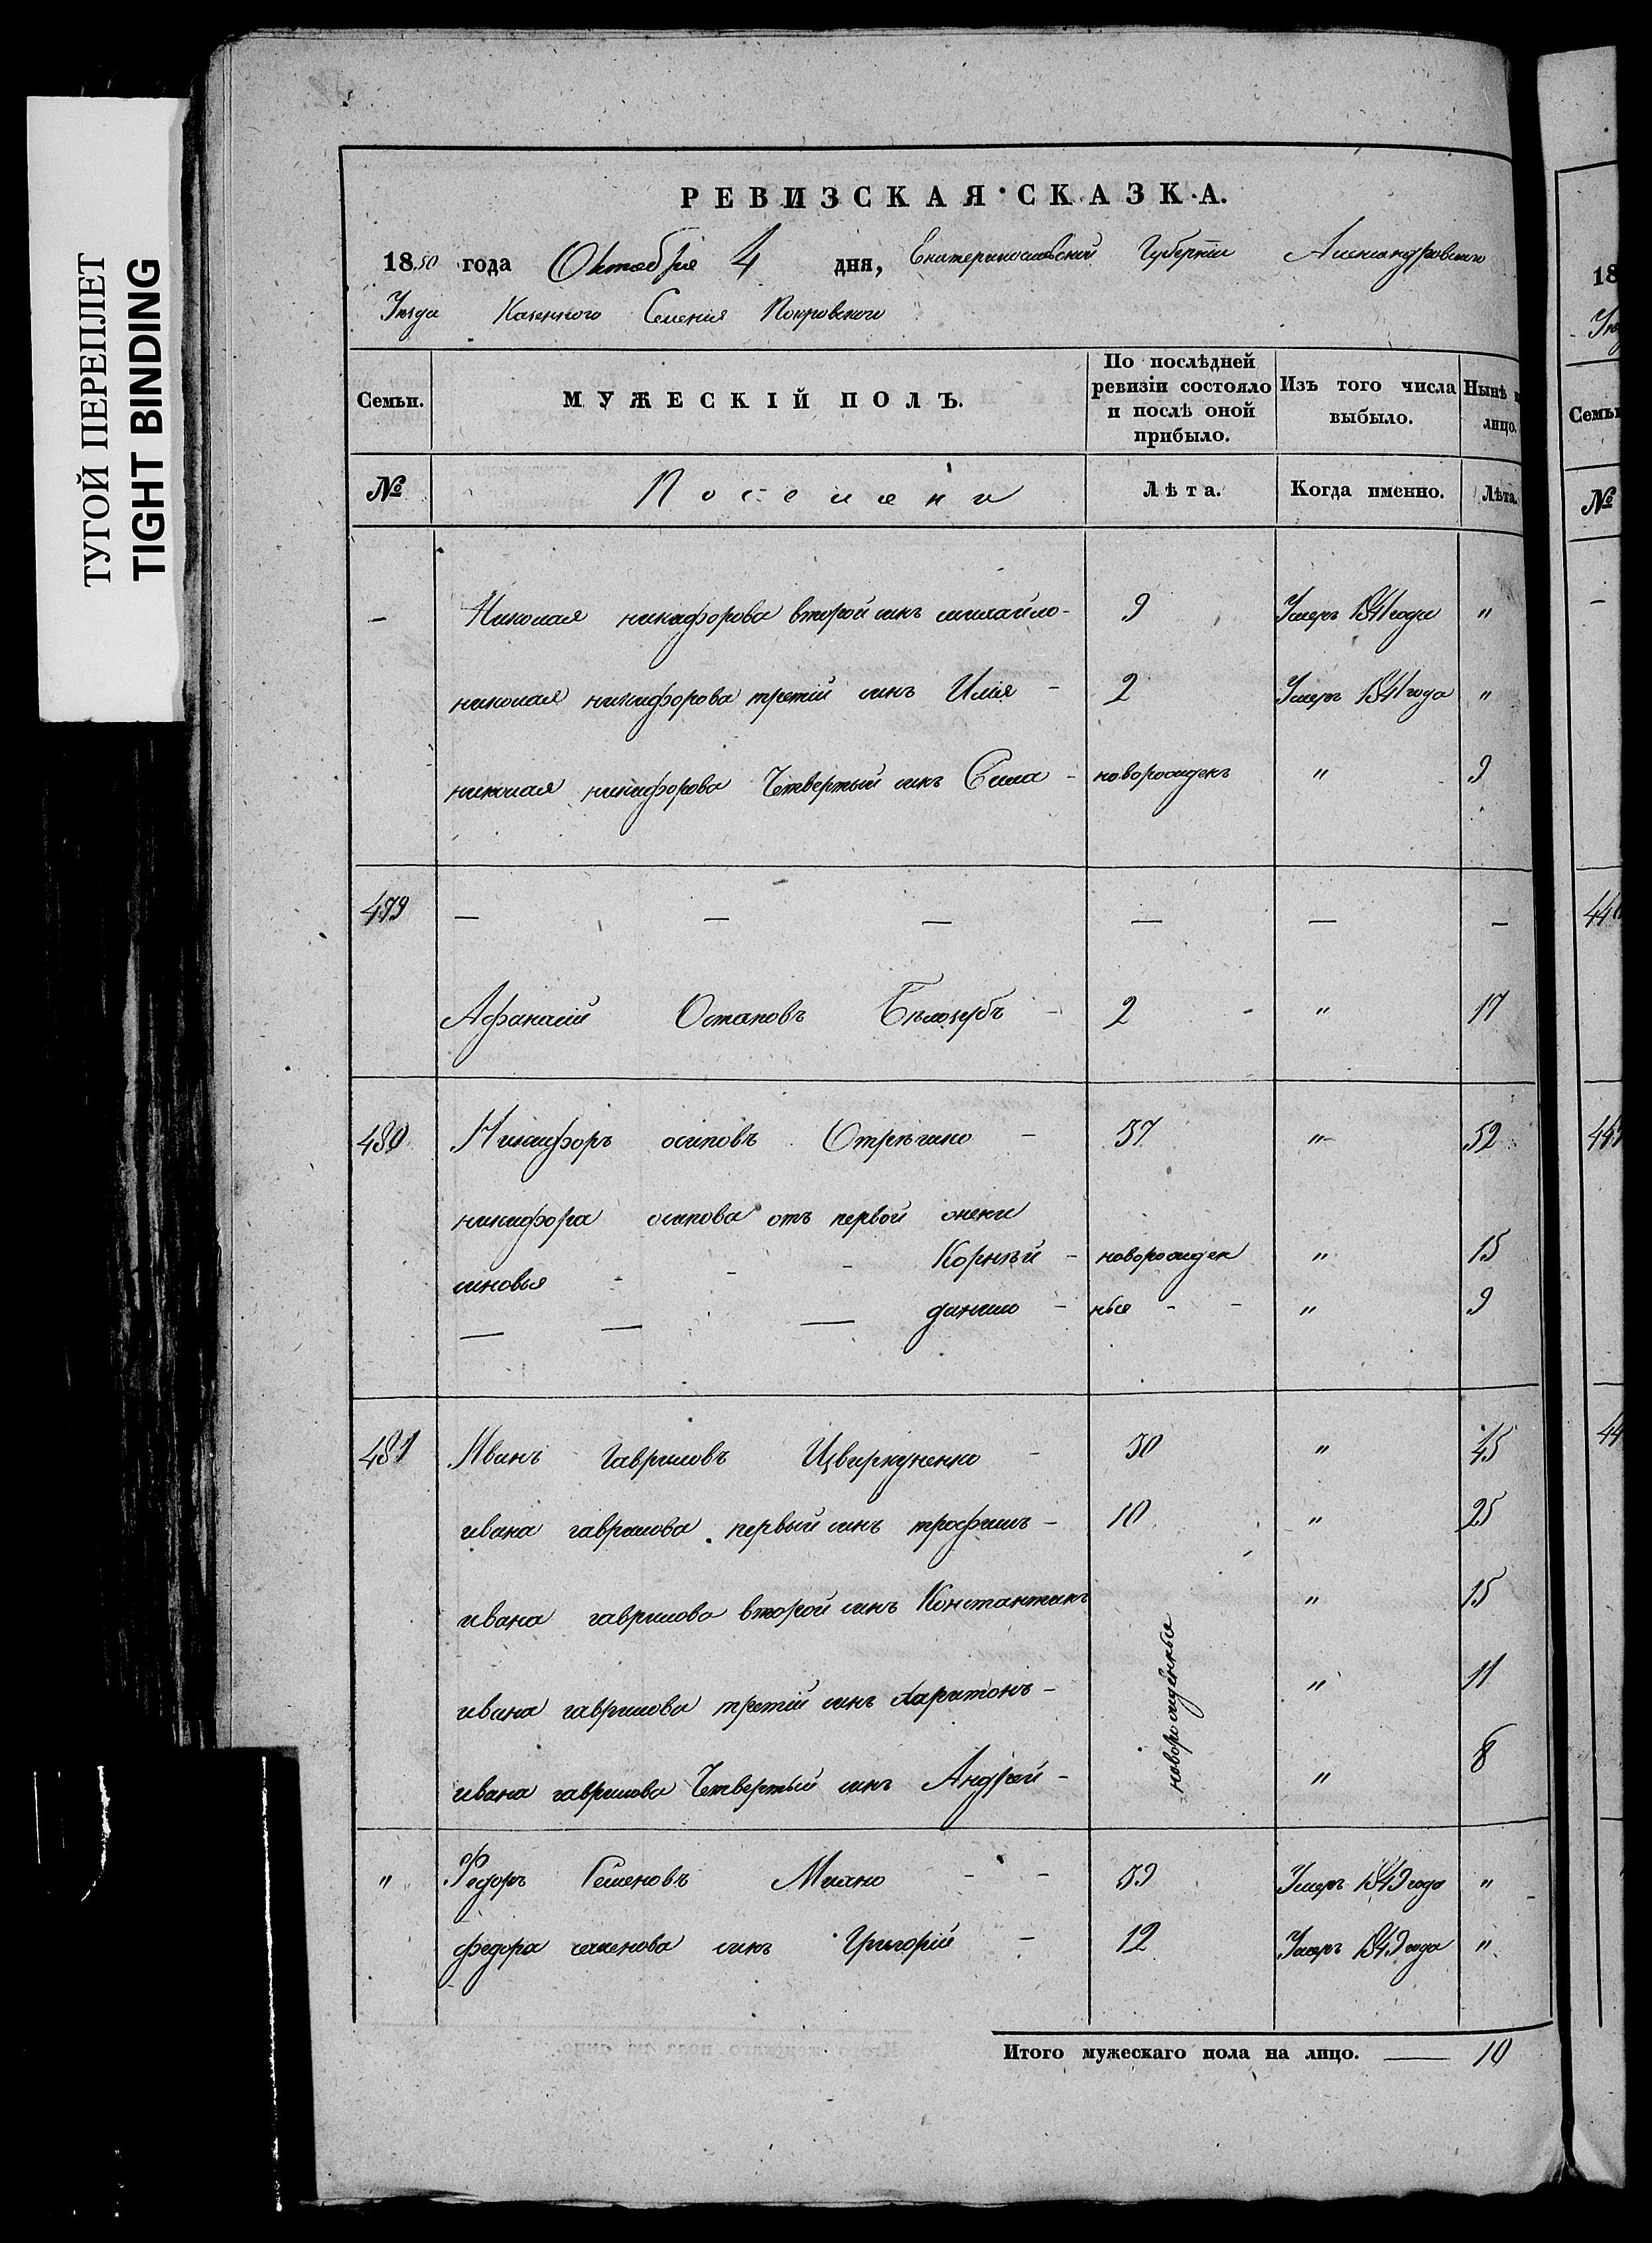 ТУГОЙ ПЕРЕПЛЕТ
TIGHT BINDING
РЕВИЗСКАЯ СКАЗКА.
1850 года Октября 4 дня, Екатеринославской Губернiи Александровского
Уѣзда Казенного Селенiя Покровского
Семьи. МУЖЕСКIЙ ПОЛЪ. По послѣдней ревизiи состояло и послѣ оной прибыло. Изъ того числа выбыло. Нынѣ лицо.
№ Поселяни Лѣта. Когда именно. Лѣта.
— Николая никифорова второй синъ михайло - 9 Умеръ 1841 года "
николая никифорова третiй синъ Илiя - 2 Умеръ 1841 года "
николая никифорова Четвертый синъ - новорожденъ " 9
479 — — — — — —
Афанасiй Остаповъ Бѣлозубъ - 2 - " 17
480 Никифоръ осиповъ - 37 " 52
никифора осипова отъ первой жени
Корнѣй - новорожден " 15
синовья - - -
данило - ныя - - " 9
— — —
481 Иванъ Гавриловъ Цвиркуненко - 30 " 45
ивана гаврилова первый синъ трофимъ - 10 " 25
ивана гаврилова второй синъ Константинъ " 15
ивана гаврилова третiй синъ харитонъ - " 11
новорожденныя
ивана гаврилова Четвертый синъ Андрей - " 8
" Федоръ Семеновъ Михно - - 39 Умеръ 1849 года "
федора семенова синъ Григорiй - 12 Умеръ 1849 года "
Итого мужескаго пола на лицо. — 10
18
Семьи
№